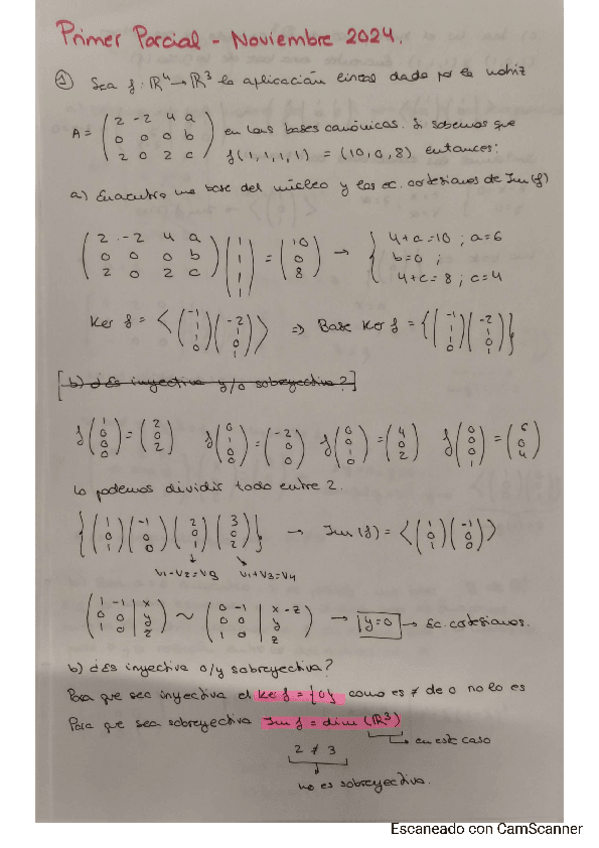 Primer Parcial - Noviembre 2024.
① Sea f: ℝ⁴→ℝ³ la aplicación lineal dada por la matriz
A = (2 -2 4 a; 0 0 0 b; 2 0 2 c) en las bases canónicas. Si sabemos que
f(1,1,1,1) = (10,0,8) entonces:
a) Encuentra una base del núcleo y las ec. cartesianas de Im(f)
(2 -2 4 a; 0 0 0 b; 2 0 2 c) (1; 1; 1; 1) = (10; 0; 8) → { 4+a=10 ; a=6
b=0 ;
4+c=8 ; c=4
Ker f = <(-1; 1; 1; 0) (-2; 1; 0; 1)> ⇒ Base Ker f = {(-1; 1; 1; 0) (-2; 1; 0; 1)}
[b) ¿Es inyectiva y/o sobreyectiva?]
f(1; 0; 0; 0) = (2; 0; 2) f(0; 1; 0; 0) = (-2; 0; 0) f(0; 0; 1; 0) = (4; 0; 2) f(0; 0; 0; 1) = (6; 0; 4)
Lo podemos dividir todo entre 2.
{(1; 0; 1) (-1; 0; 0) (2; 0; 1) (3; 0; 2)} → Im(f) = <(1; 0; 1) (-1; 0; 0)>
V1-V2=V3 V1+V3=V4
(1 -1 | x; 0 0 | y; 1 0 | z) ~ (0 -1 | x-z; 0 0 | y; 1 0 | z) → y=0 → Ec. cartesianas.
b) ¿Es inyectiva o/y sobreyectiva?
Para que sea inyectiva el Ker f = {0} como es ≠ de 0 no lo es
Para que sea sobreyectiva Im f = dim (ℝ³)
→ en este caso
2 ≠ 3
→ no es sobreyectiva.
Escaneado con CamScanner